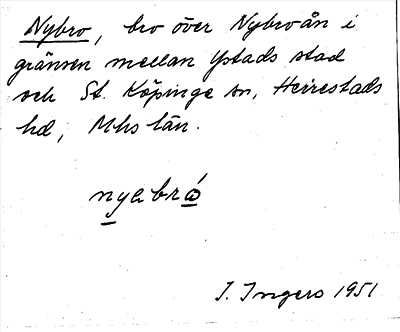 Nybro, bro över Nybroån i
gränsen mellan Ystads stad
och St. Köpinge sn, Herrestads
hd, Mhs län.
nyabró
I. Ingers 1951